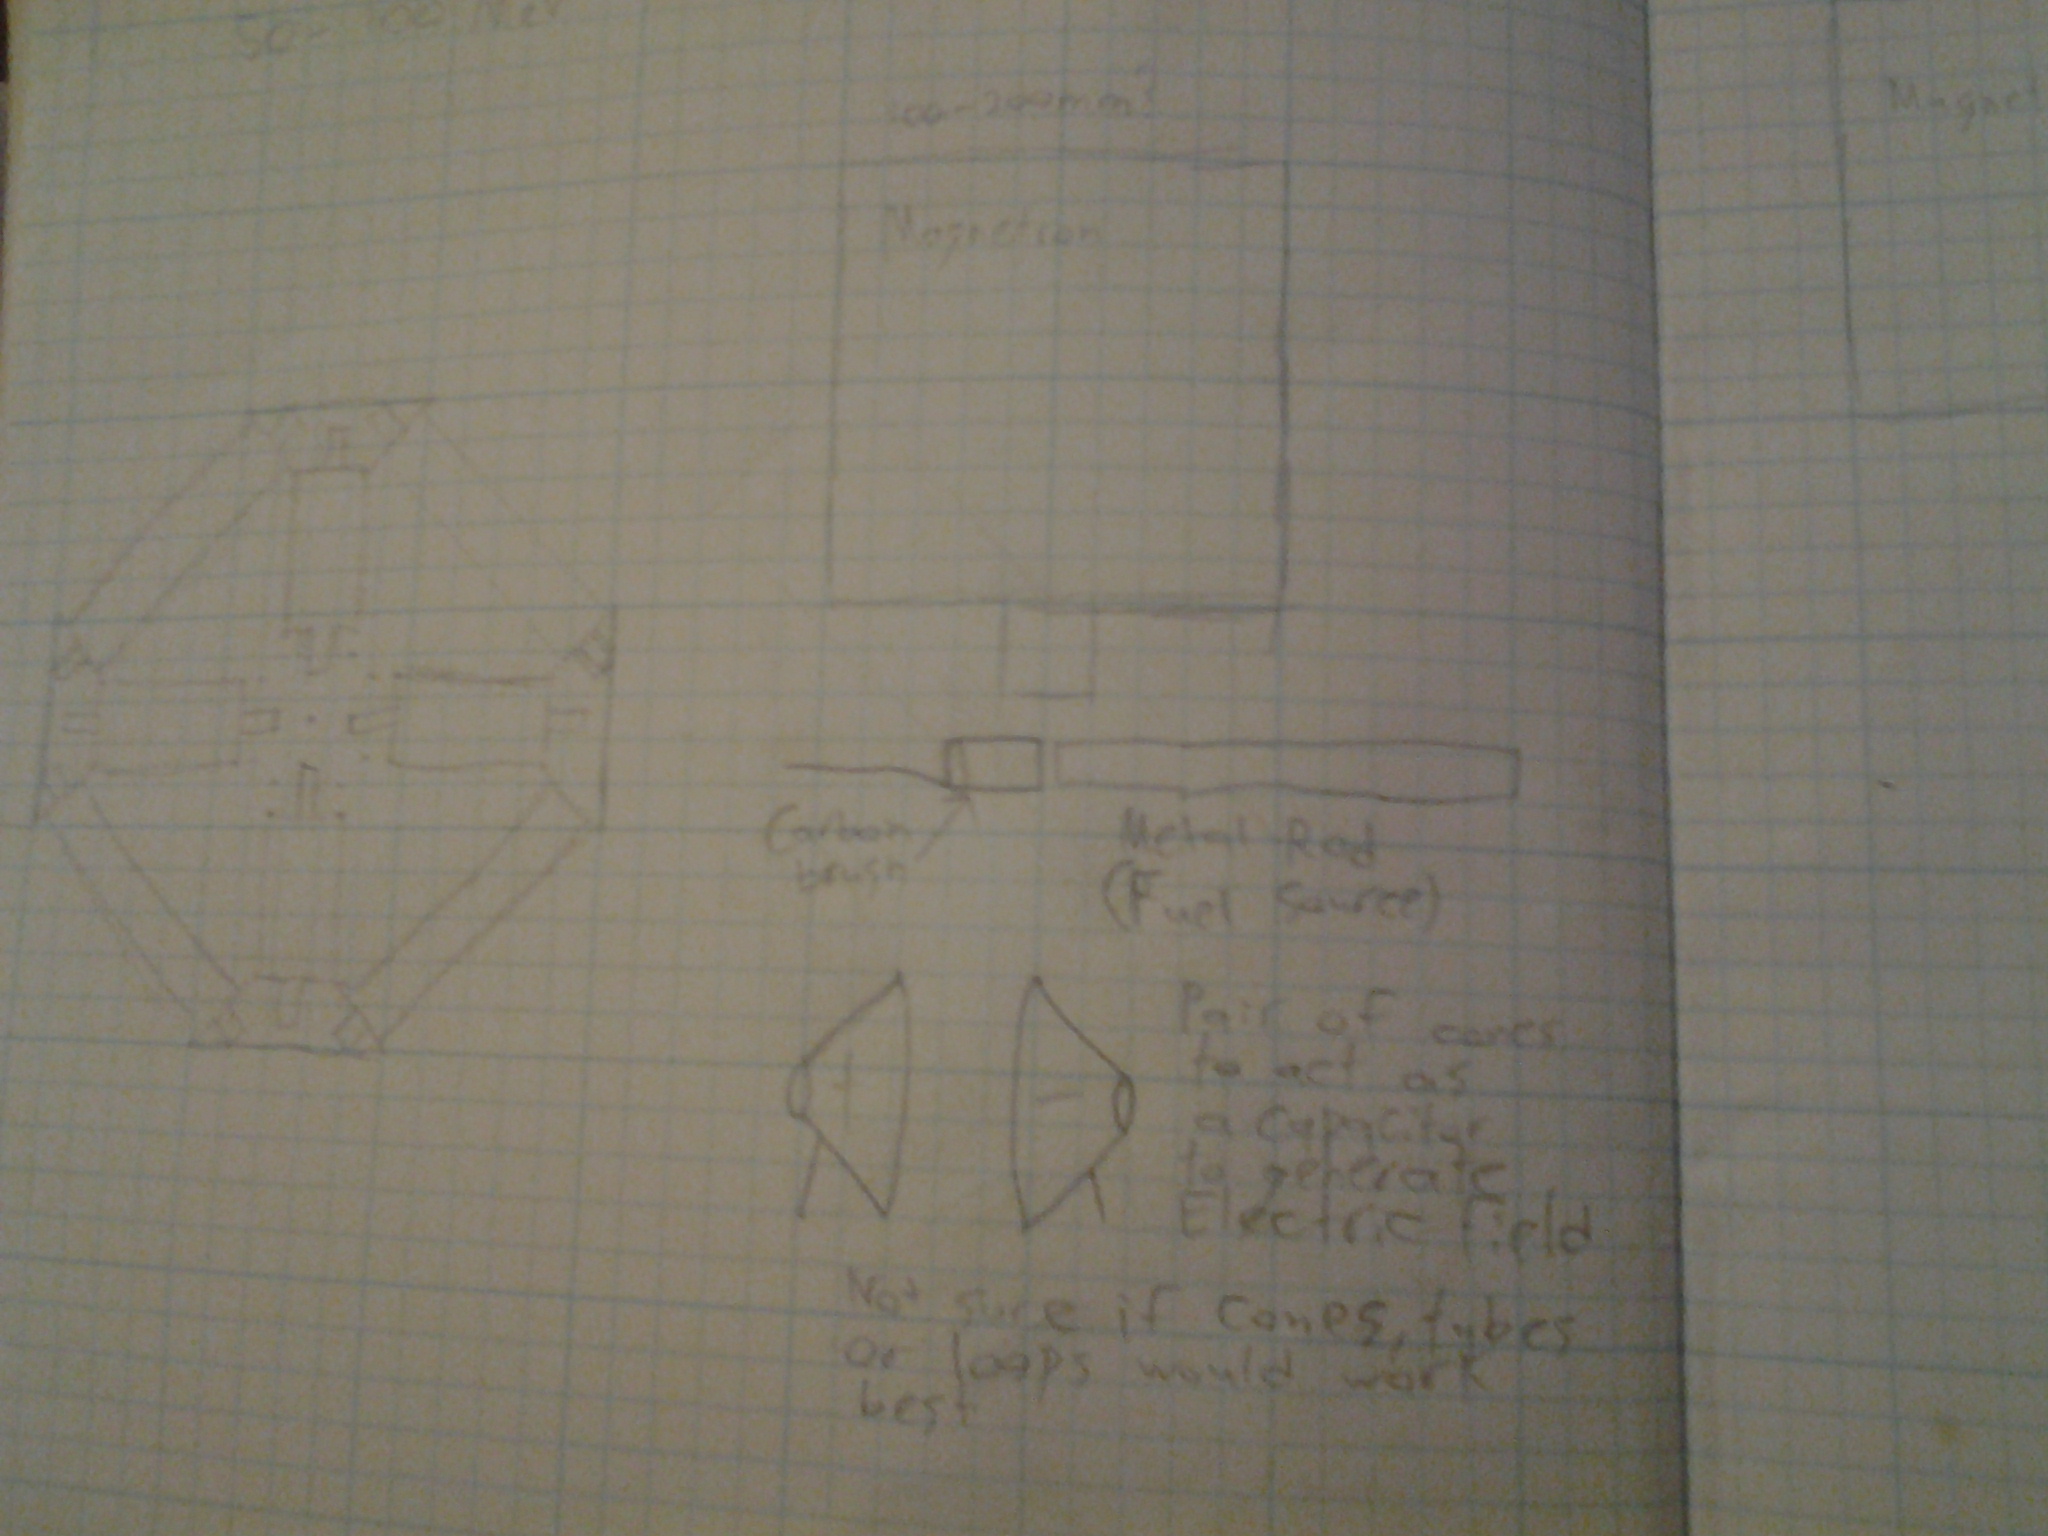 50-100 Nev
100-200mm?
Magnetron
Magnet
Carbon
brush
Metal Rod
(Fuel Source)
Pair of cones
to act as
a capacityr
to generate
Electric field
+
-
Not sure if cones, tubes
or loops would work
best